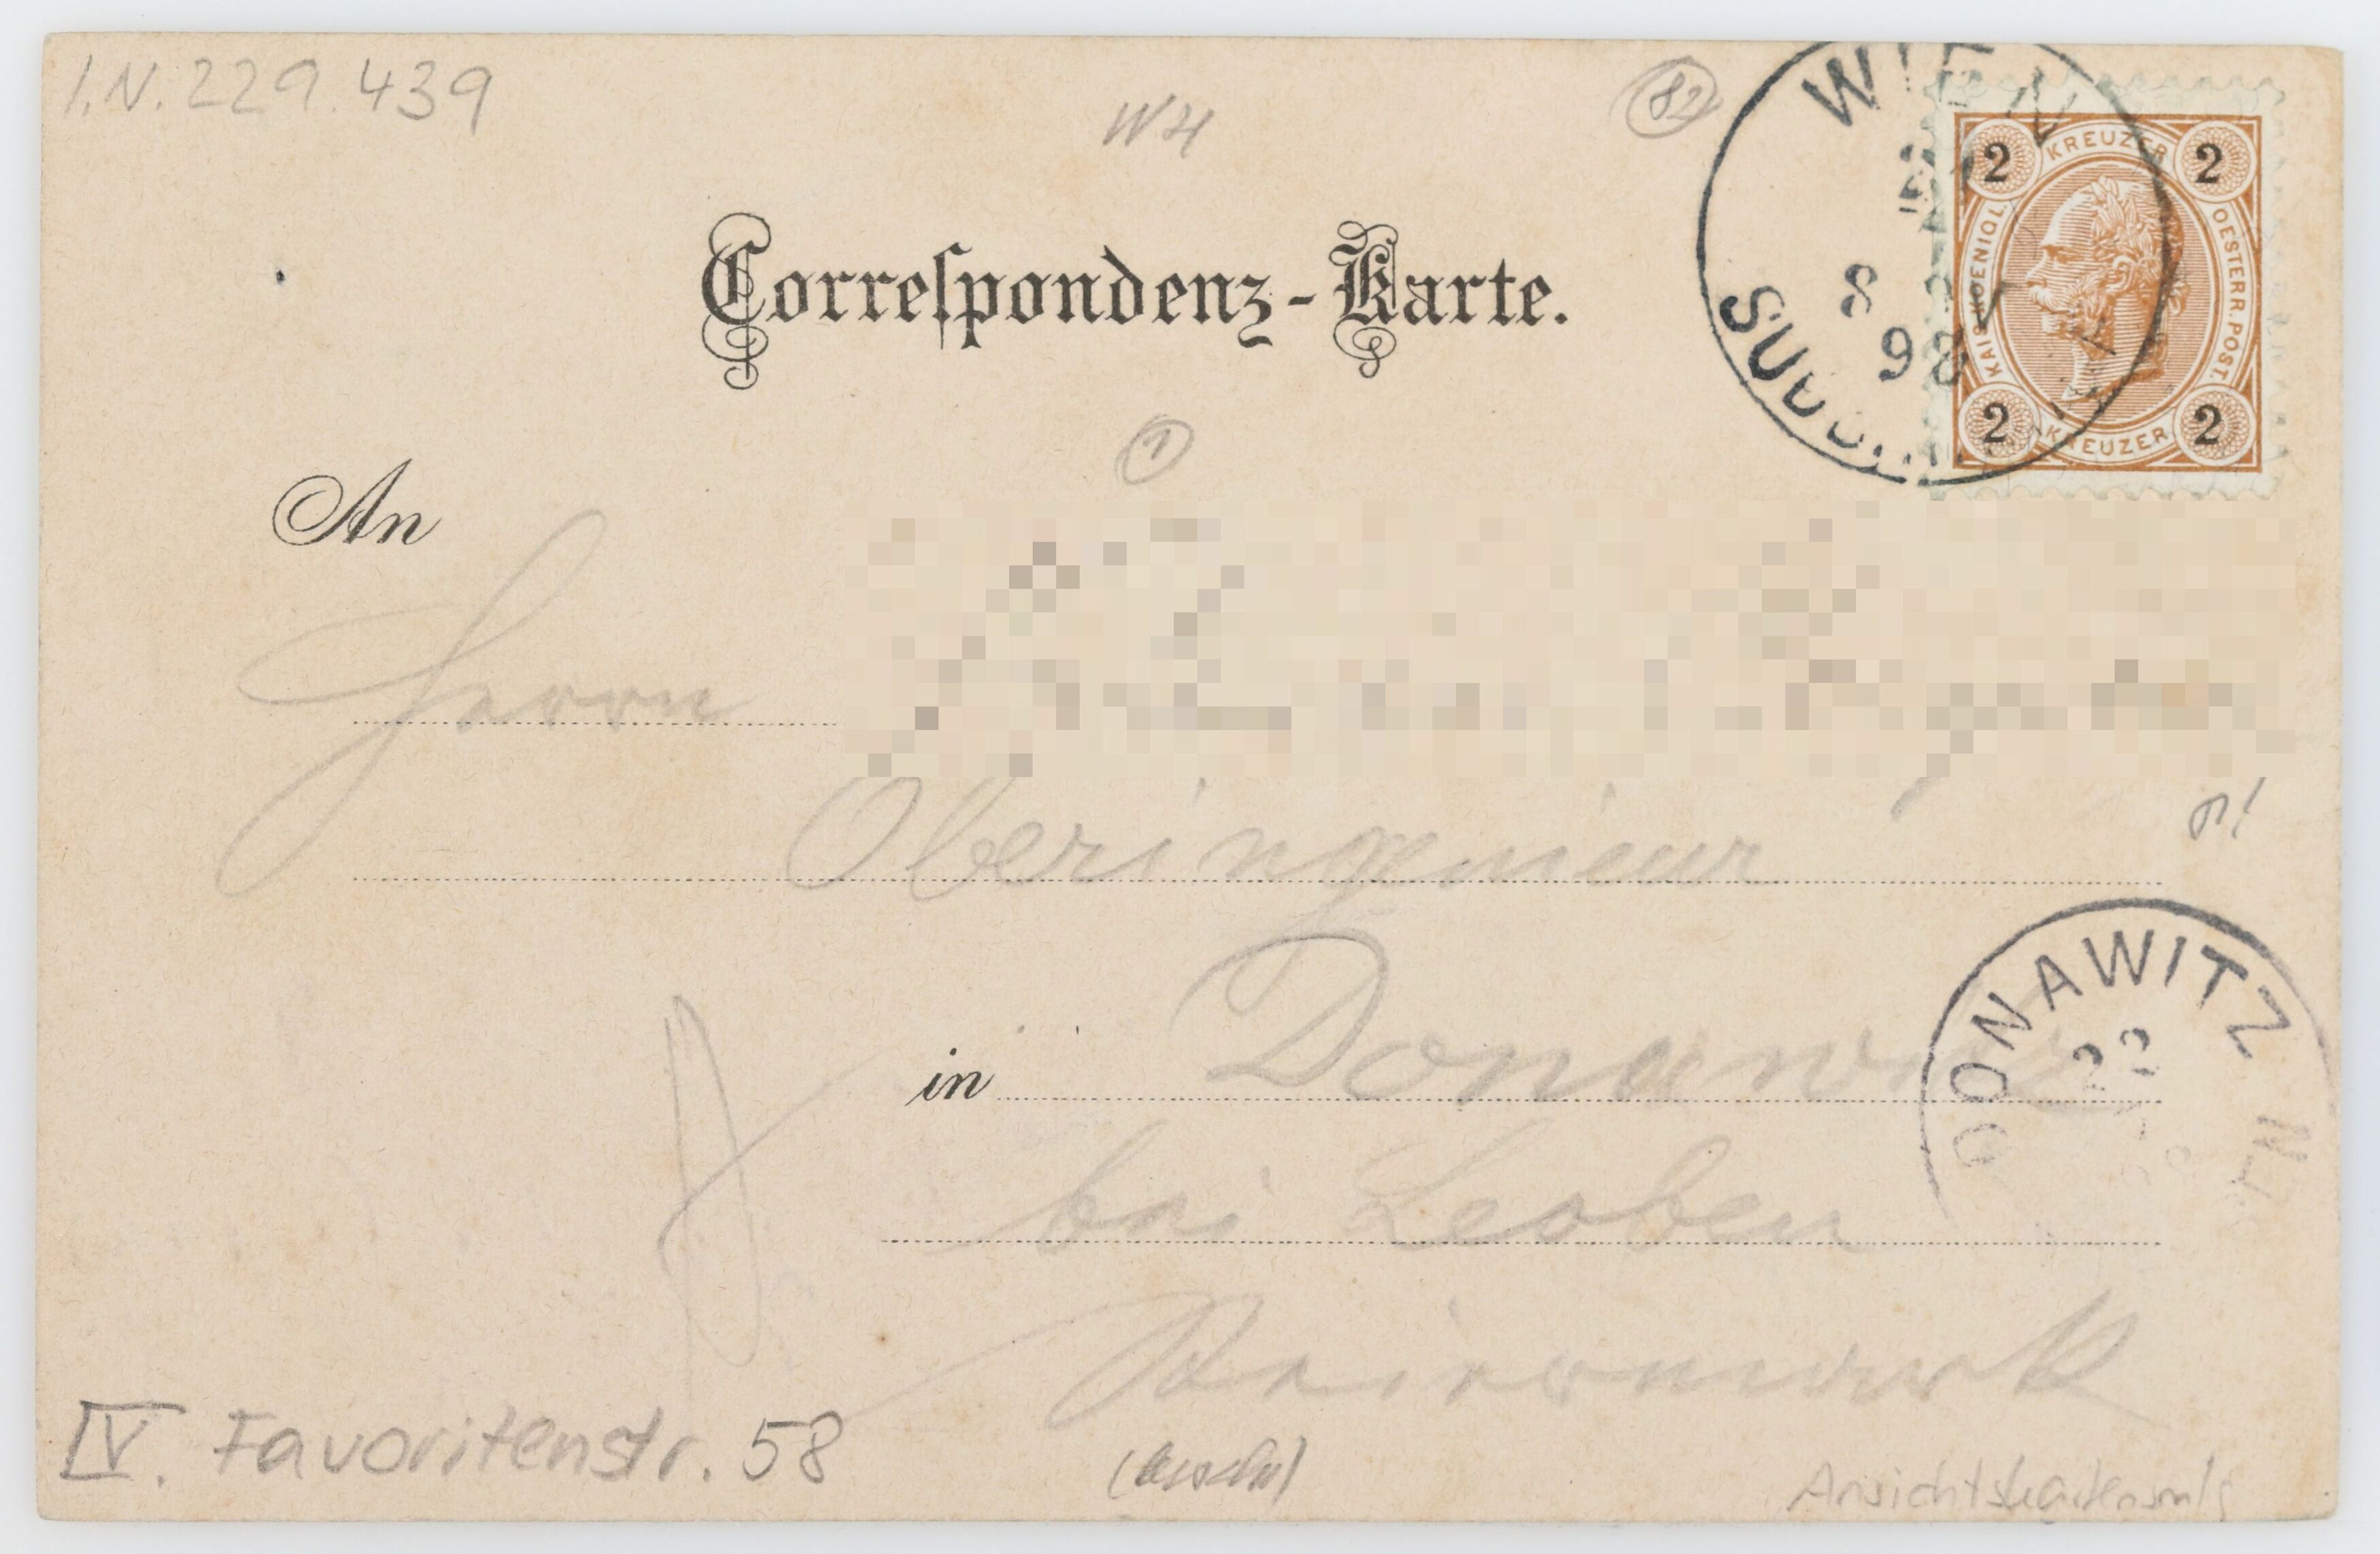 I.N. 229.439
82
WIEN
8 V
98
SÜDB
2 KREUZER 2
KAIS. KOENIGL. OESTERR. POST.
2 KREUZER 2
Correſpondenz-Karte.
1
An
Herrn
Oberingenieur
in Donawitz
DONAWITZ
22
bei Leoben
Steiermark
IV. Favoritenstr. 58
Ansichtskartensmlg